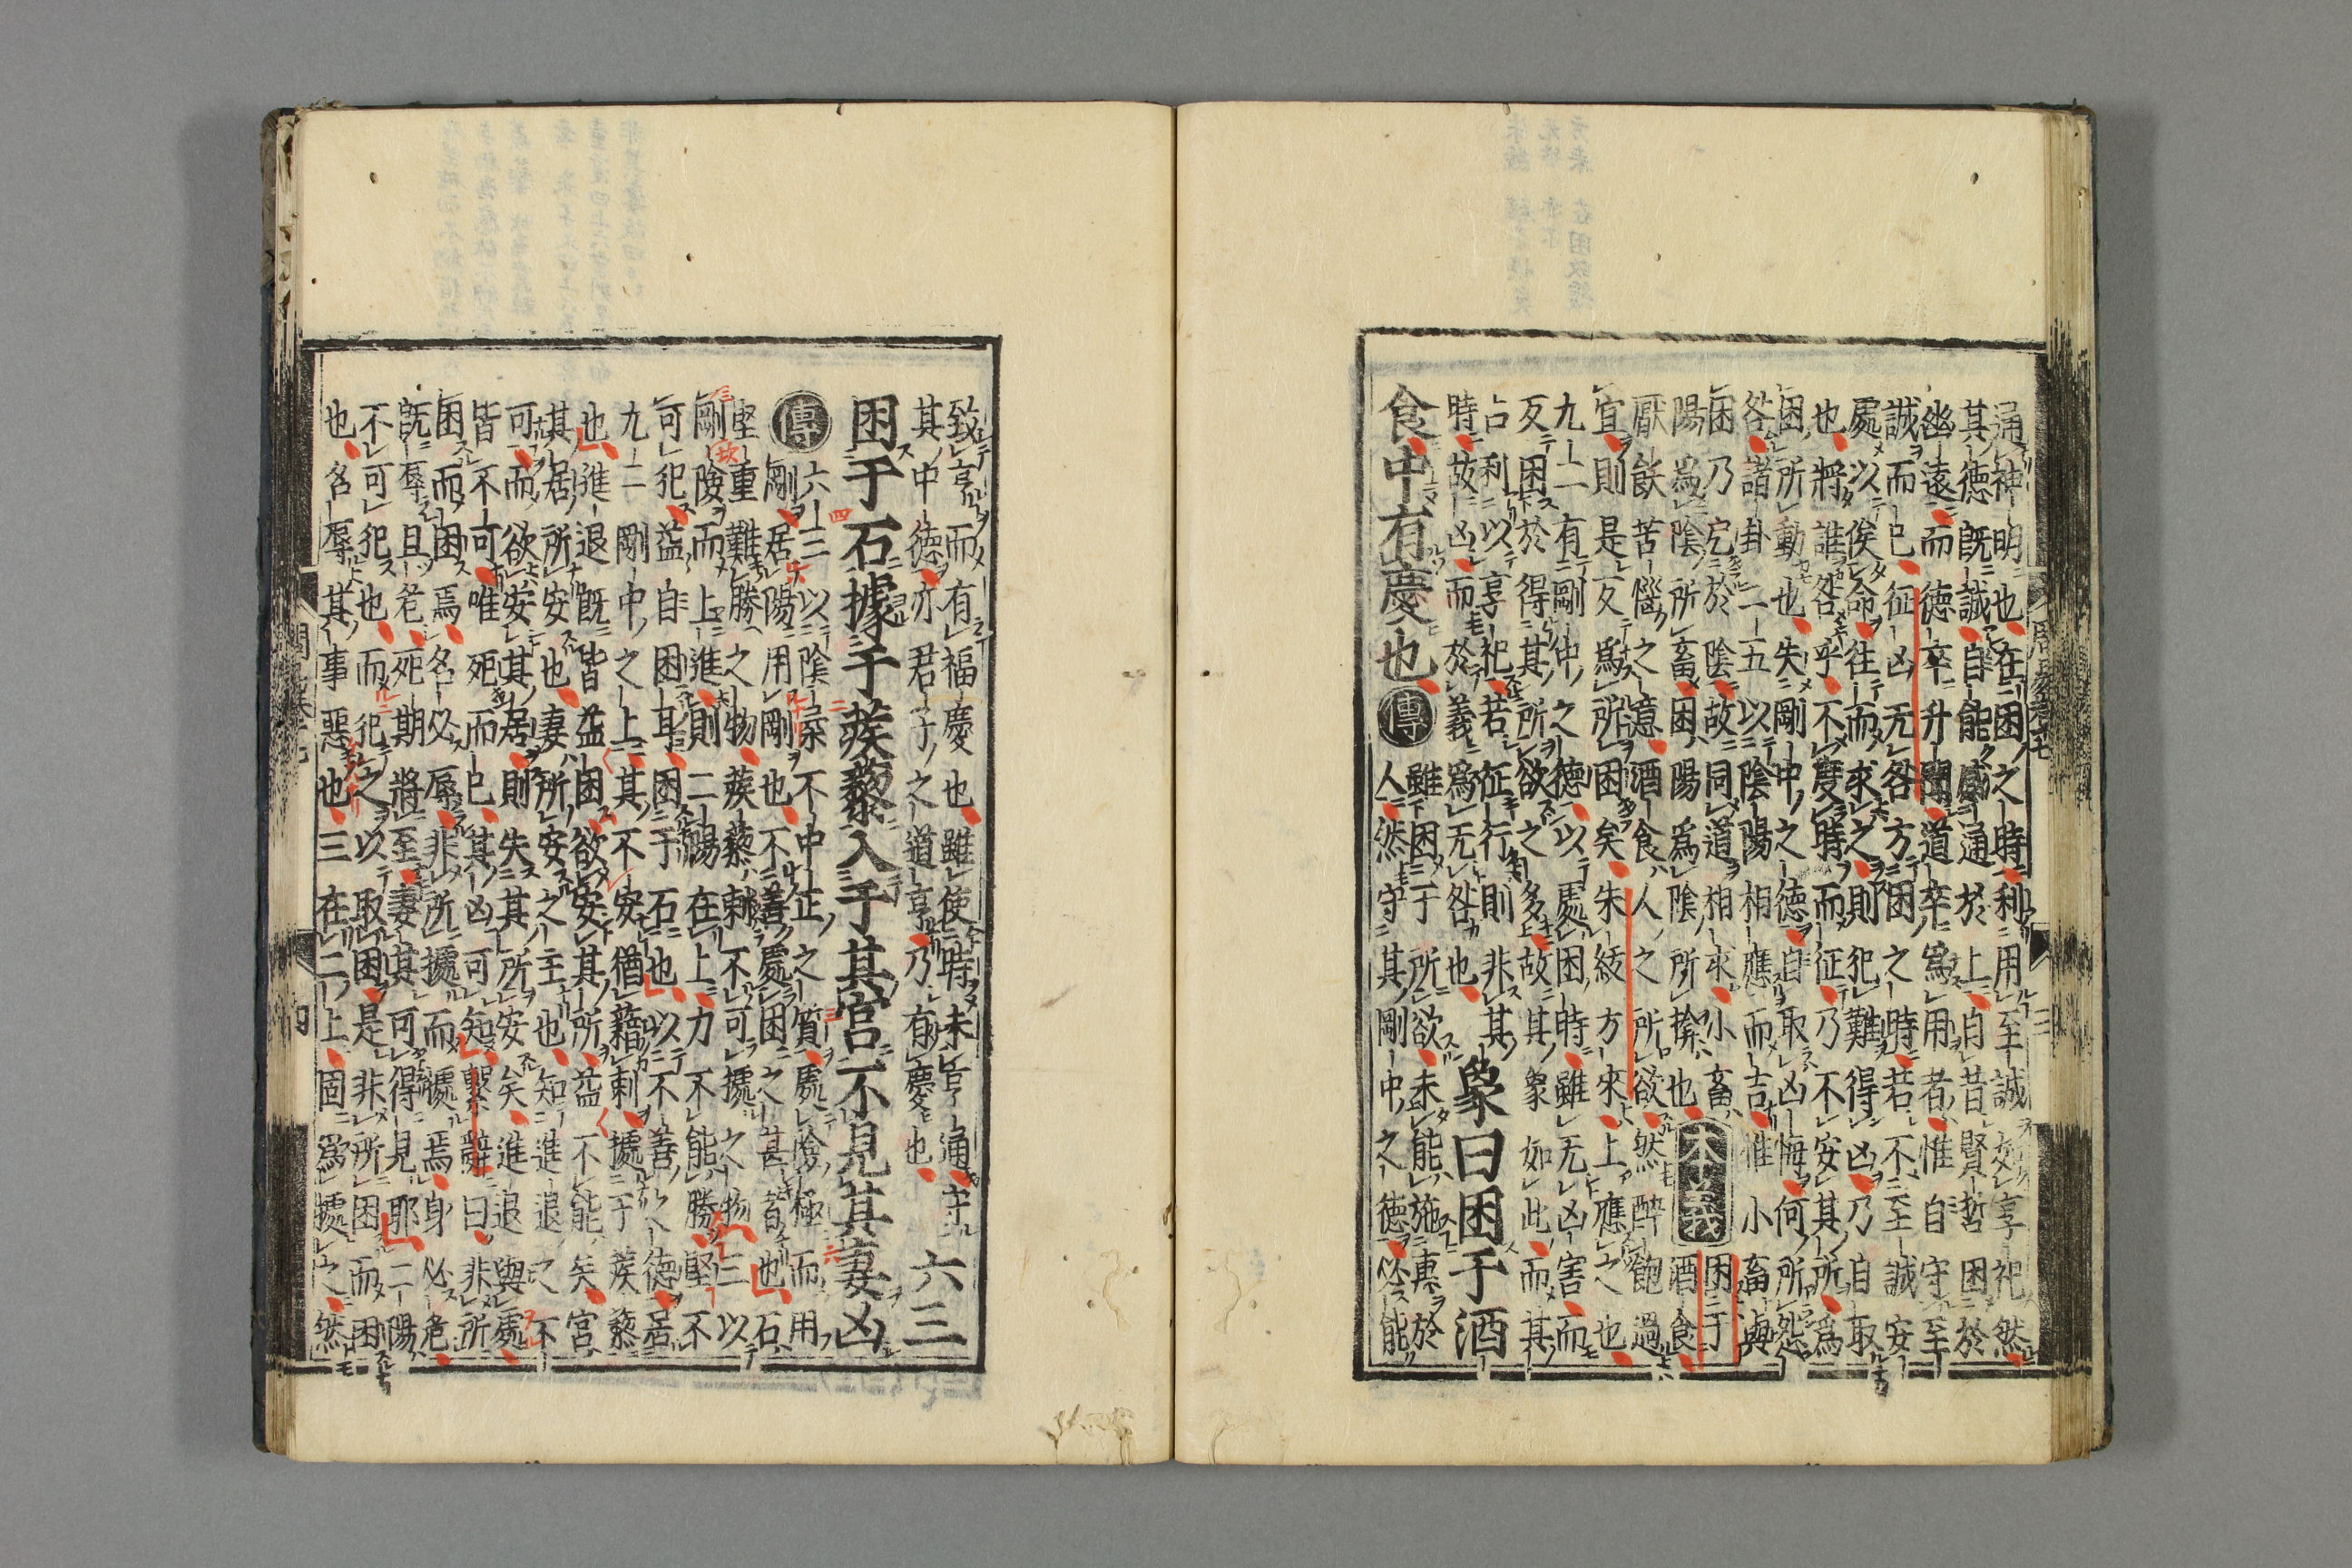 通神明也在困之時利用至誠如享祀然
其德既誠自能感通於上自昔賢哲困於
幽遠而德卒升聞道卒爲用者惟自守至
誠而已征凶无咎方困之時若不至誠安
處以俟命往而求之則犯難得凶乃自取
也將誰咎乎不度時而征乃不安其所爲
困所動也失剛中之德自取凶悔何所怨
咎諸卦二五以陰陽相應而吉惟小畜與
困乃戹於陰故同道相求小畜
陽爲陰所畜困陽爲陰所揜也
本義
困于
酒食
厭飫苦惱之意酒食人之所欲然醉飽過
宜則是反爲所困矣朱紱方來上應之也
九二有剛中之德以處困時雖无凶害而
反困於得其所欲之多故其象如此而其
占利以享祀若征行則非其
時故凶而於義爲无咎也
象曰困于酒
食中有慶也傳
雖困于所欲未能施惠於
人然守其剛中之德必能
致亨而有福慶也雖使時未亨通守
其中德亦君子之道亨乃有慶也
六三
困于石據于蒺藜入于其宮不見其妻凶
傳
六三以陰柔不中正之質處險極而用
剛居陽用剛也不善處困之甚者也石
堅重難勝之物蒺藜刺不可據之物三以
剛險而上進則二陽在上力不能勝堅不
可犯益自困耳困于石也以不善之德居
九二剛中之上其不安猶藉刺據于蒺藜
也進退既皆益困欲安其所益不能矣宮
其居所安也妻所安之主也知進退之不
可而欲安其居則失其所安矣進退與處
皆不可唯死而已其凶可知繫辭曰非所
困而困焉名必辱非所據而據焉身必危
既辱且危死期將至妻其可得見耶二陽
不可犯也而犯之以取困是非所困而困
也名辱其事惡也三在二上固爲據之然